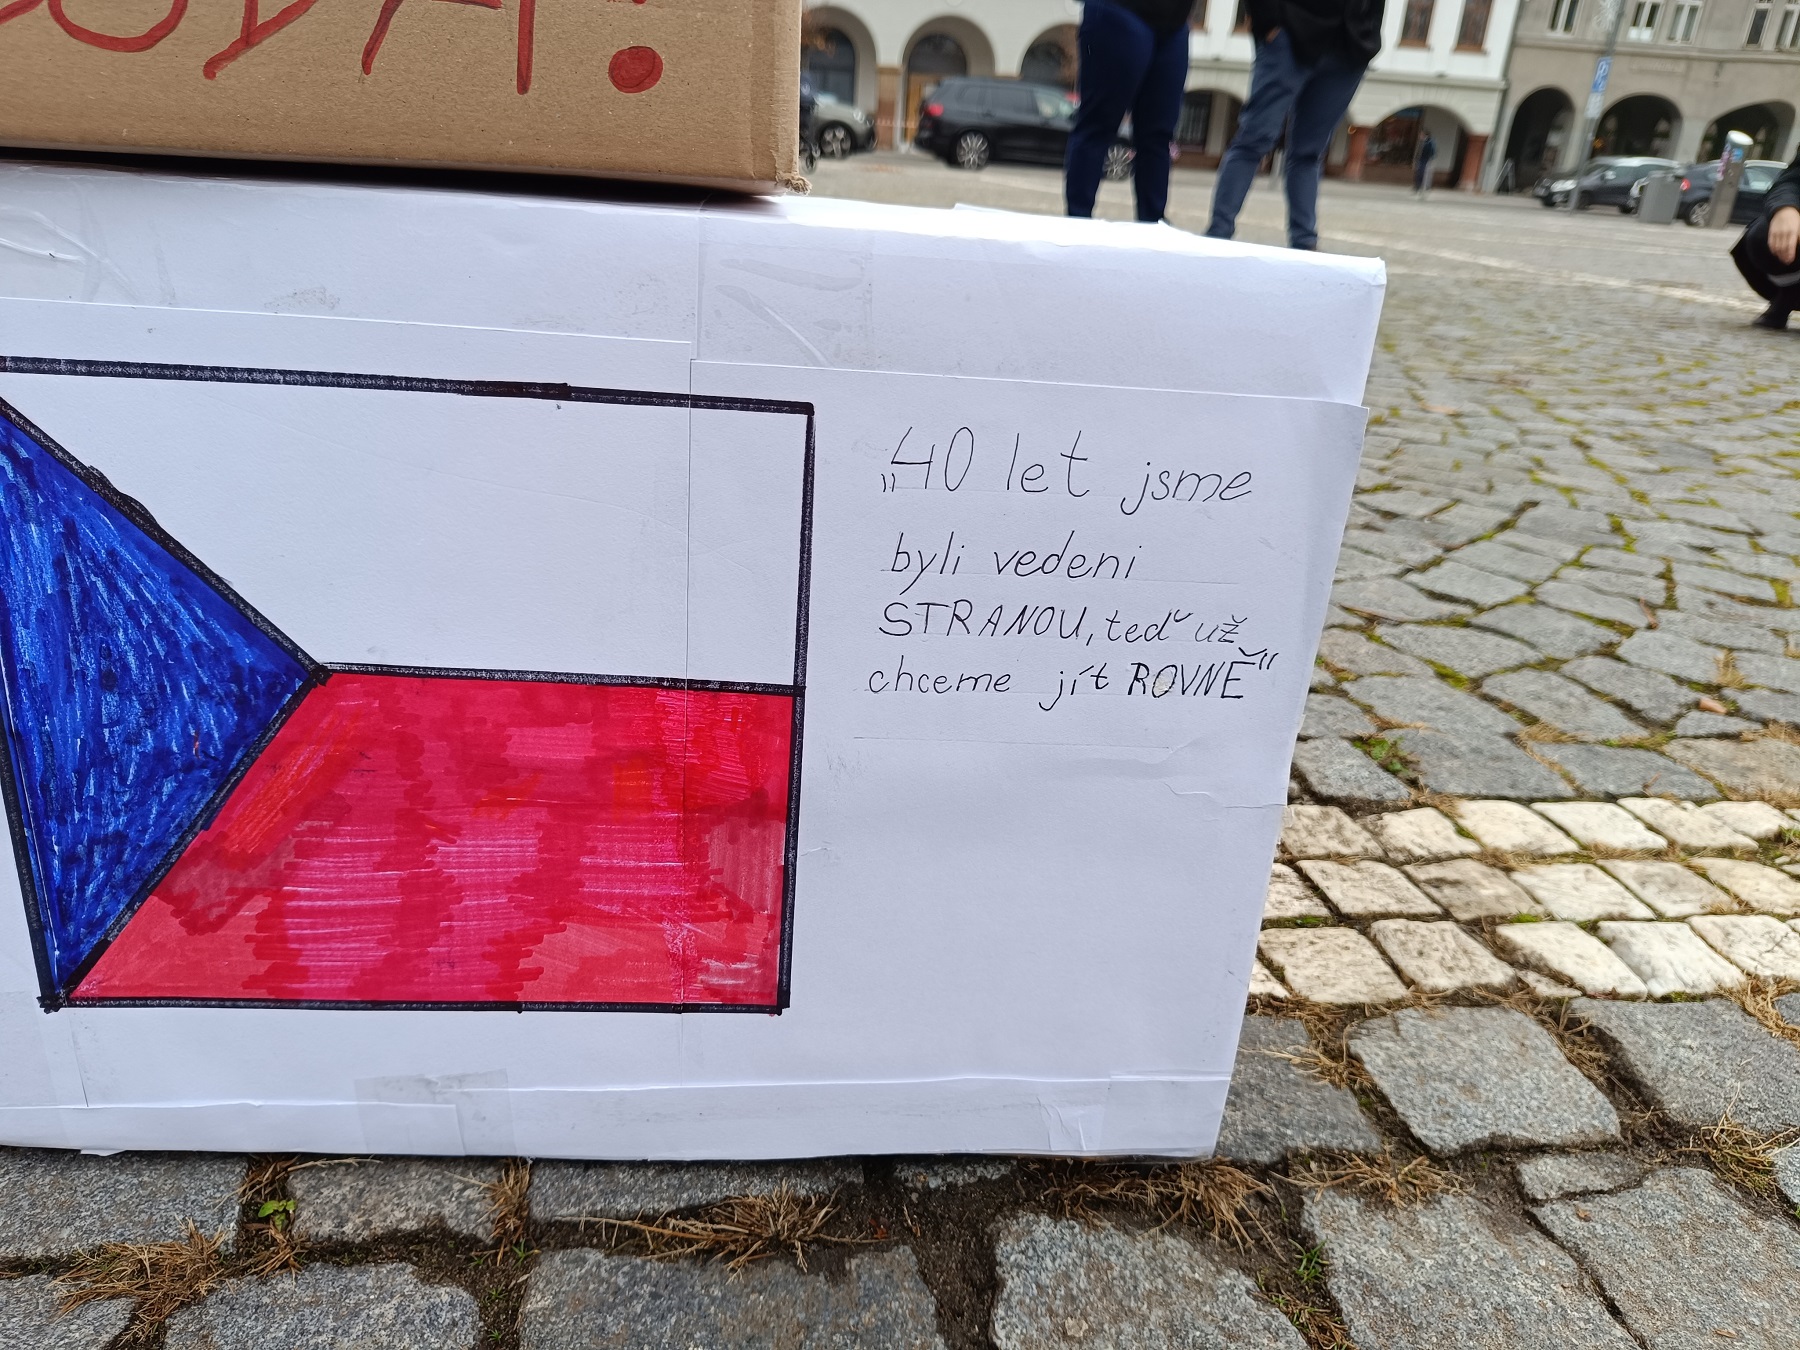 „40 let jsme
byli vedeni
STRANOU, teď už
chceme jít ROVNĚ“